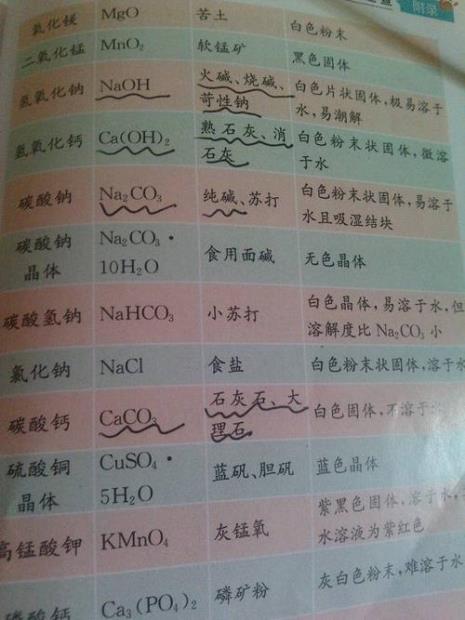 附录
氧化镁 MgO 苦土 白色粉末
二氧化锰 MnO₂ 软锰矿 黑色固体
氢氧化钠 NaOH 火碱、烧碱、 白色片状固体,极易溶于
苛性钠 水,易潮解
氢氧化钙 Ca(OH)₂ 熟石灰、消 白色粉末状固体,微溶
石灰 于水
碳酸钠 Na₂CO₃ 纯碱、苏打 白色粉末状固体,易溶于
水且吸湿结块
碳酸钠 Na₂CO₃· 食用面碱 无色晶体
晶体 10H₂O
碳酸氢钠 NaHCO₃ 小苏打 白色晶体,易溶于水,但
溶解度比Na₂CO₃小
氯化钠 NaCl 食盐 白色粉末状固体,溶于水
碳酸钙 CaCO₃ 石灰石、大 白色固体,不溶于
理石
硫酸铜 CuSO₄· 蓝矾、胆矾 蓝色晶体
晶体 5H₂O
高锰酸钾 KMnO₄ 灰锰氧 紫黑色固体,溶于水,
水溶液为紫红色
磷酸钙 Ca₃(PO₄)₂ 磷矿粉 灰白色粉末,难溶于水